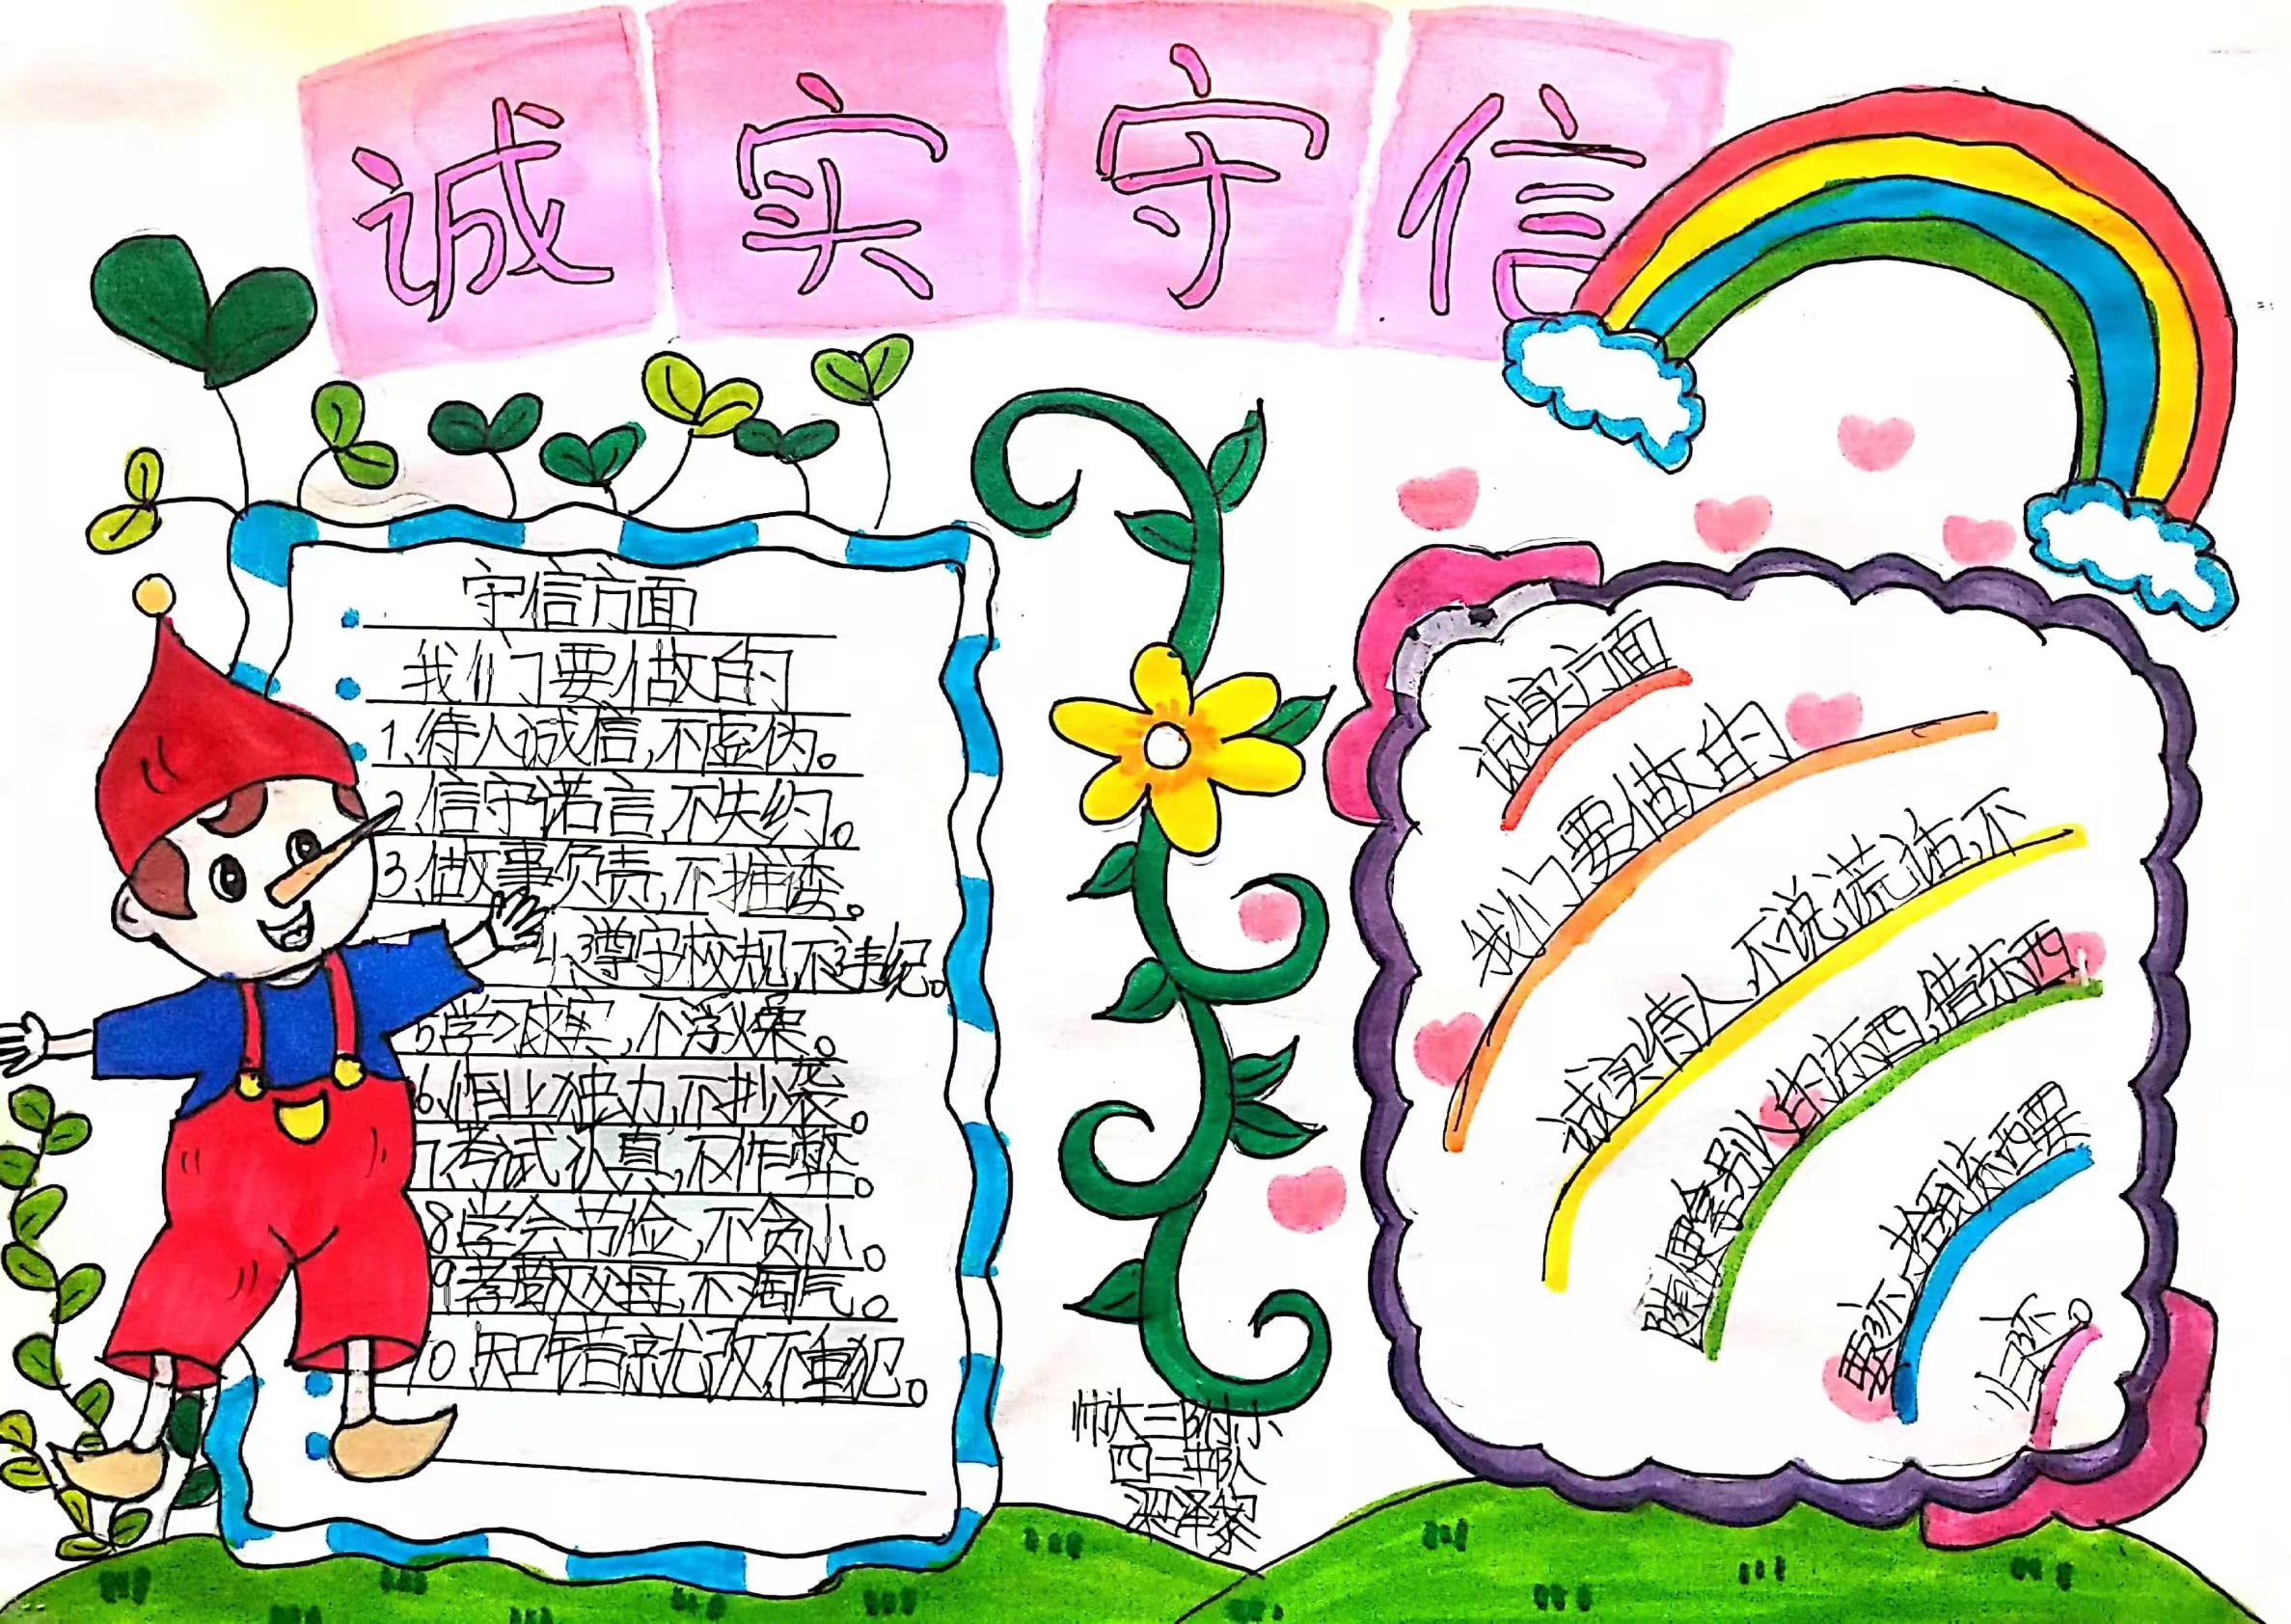 诚实守信
守信方面
我们要做的
1、待人诚信,不虚伪。
2、信守诺言,不失约。
3、做事负责,不推诿。
4、遵守校规,不违纪。
5学习诚实,不敷衍。
6、作业独力,不抄袭。
7考试认真,不作弊。
8学会节俭,不贪小。
9孝敬父母,不淘气。
10、知错就改,不重犯。
诚实方面
我们要做的
诚实待人,不说谎话,不
随便拿别人的东西,借东西
要还,捡到东西要
归还。
师大三附小
四三中队
梁泽黎